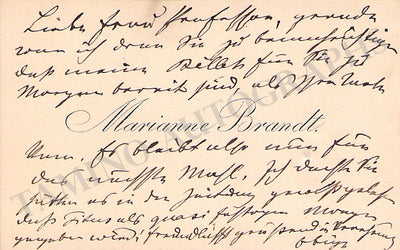 Liebe Frau Professor, gerade
war ich denn Sie zu benachrichtigen
daß meine Billets für Sie zu
Morgen bereit sind, als Ihr
Marianne Brandt.
Nun. Es bleibt also nun für
das nächste Mahl. Ich dachte Sie
hätten es in der Zeitung gelesen
daß Titus als quasi Morgen
gegeben wird; freundlichst grüßend in Verehrung
obige
TAMINO AUTOGRAPHS